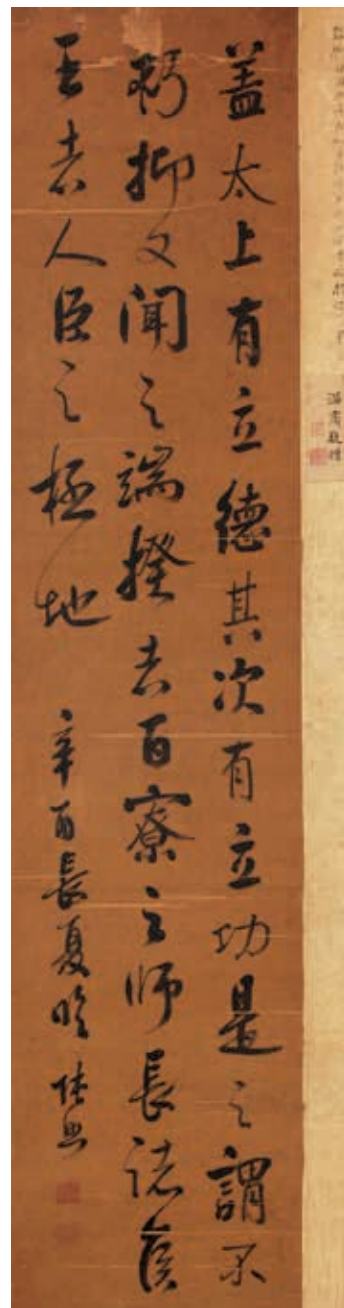 蓋太上有立德其次有立功是之謂不
朽抑又聞之端揆者百寮之師長諸侯
王者人臣之極地 辛酉長夏臨